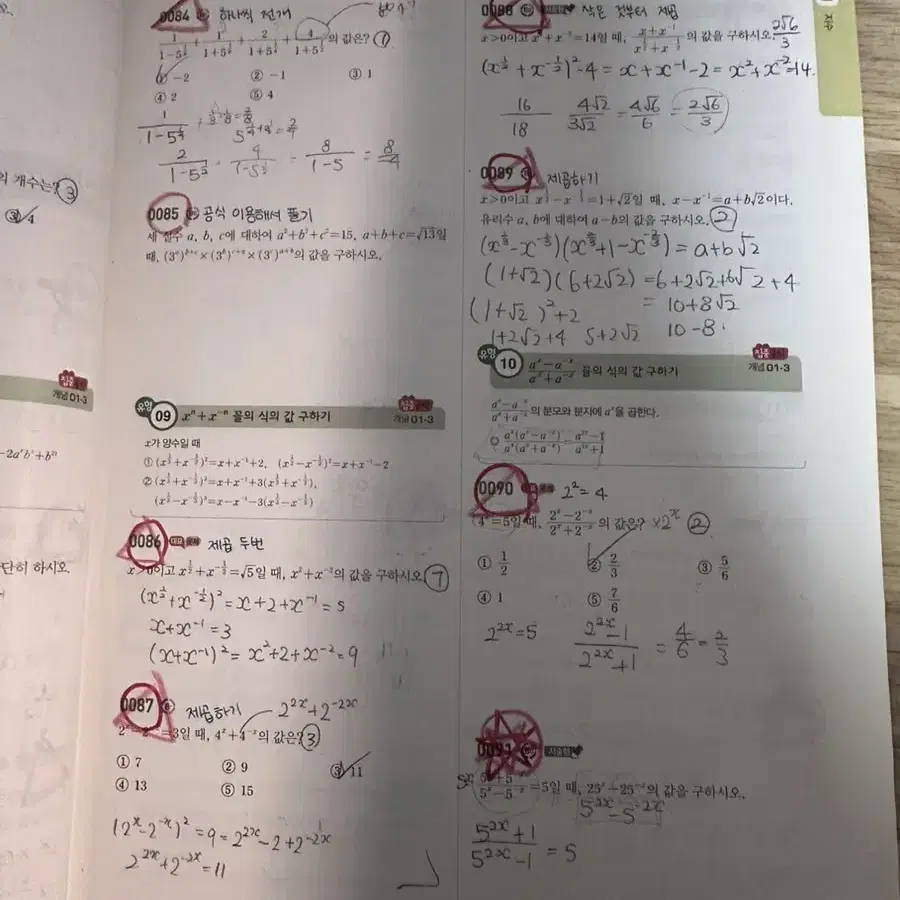 0084 하나씩 전개
의 값은? ①
① -2 ② -1 ③ 1
④ 2 ⑤ 4
0085 공식 이용해서 풀기
세 실수 a, b, c에 대하여 a²+b²+c²=15, a+b+c=√13일
때, (3ᵃ)ᵇ⁺ᶜ×(3ᵇ)ᶜ⁺ᵃ×(3ᶜ)ᵃ⁺ᵇ의 값을 구하시오.
의 개수는? ③
③ 4
개념 01-3
단히 하시오.
유형 09 xⁿ+x⁻ⁿ 꼴의 식의 값 구하기
개념 01-3
x가 양수일 때
① (x^{1/2}+x^{-1/2})²=x+x⁻¹+2, (x^{1/2}-x^{-1/2})²=x+x⁻¹-2
② (x^{1/3}+x^{-1/3})³=x+x⁻¹+3(x^{1/3}+x^{-1/3}),
(x^{1/3}-x^{-1/3})³=x-x⁻¹-3(x^{1/3}-x^{-1/3})
0086 대표 문제 제곱 두번
x>0이고 x^{1/2}+x^{-1/2}=√5일 때, x²+x⁻²의 값을 구하시오. 7
(x^{1/2}+x^{-1/2})²=x+2+x⁻¹=5
x+x⁻¹=3
(x+x⁻¹)²=x²+2+x⁻²=9
0087 제곱하기 2²ˣ+2⁻²ˣ
=3일 때, 4ˣ+4⁻ˣ의 값은? ③
① 7 ② 9 ③ 11
④ 13 ⑤ 15
(2ˣ-2⁻ˣ)²=9=2²ˣ-2+2⁻²ˣ
2²ˣ+2⁻²ˣ=11
0088 작은 것부터 제곱
의 값을 구하시오. 2√6/3
(x^{1/2}+x^{-1/2})²-4=x+x⁻¹-2=x²+x⁻²=14
16/18 4√2/3√2=4√6/6=2√6/3
0089 제곱하기
x>0이고 x^{1/3}-x^{-1/3}=1+√2일 때, x-x⁻¹=a+b√2이다.
유리수 a, b에 대하여 a-b의 값을 구하시오. 2
(x^{1/3}-x^{-1/3})(x^{2/3}+1-x^{-2/3})=a+b√2
(1+√2)(6+2√2)=6+2√2+6√2+4
=10+8√2
(1+√2)²+2
1+2√2+4 5+2√2 10-8
유형 10 (aˣ-a⁻ˣ)/(aˣ+a⁻ˣ) 꼴의 식의 값 구하기
개념 01-3
(aˣ-a⁻ˣ)/(aˣ+a⁻ˣ)의 분모와 분자에 aˣ을 곱한다.
aˣ(aˣ-a⁻ˣ)/aˣ(aˣ+a⁻ˣ)=(a²ˣ-1)/(a²ˣ+1)
0090 대표 문제 2²=4
4ˣ=5일 때, (2ˣ-2⁻ˣ)/(2ˣ+2⁻ˣ)의 값은? ×2ˣ ②
① 1/2 ② 2/3 ③ 5/6
④ 1 ⑤ 7/6
2²ˣ=5 (2²ˣ-1)/(2²ˣ+1)=4/6=2/3
0091 서술형
=5일 때, 25ˣ-25⁻ˣ의 값을 구하시오.
5²ˣ-5⁻²ˣ
(5²ˣ+1)/(5²ˣ-1)=5